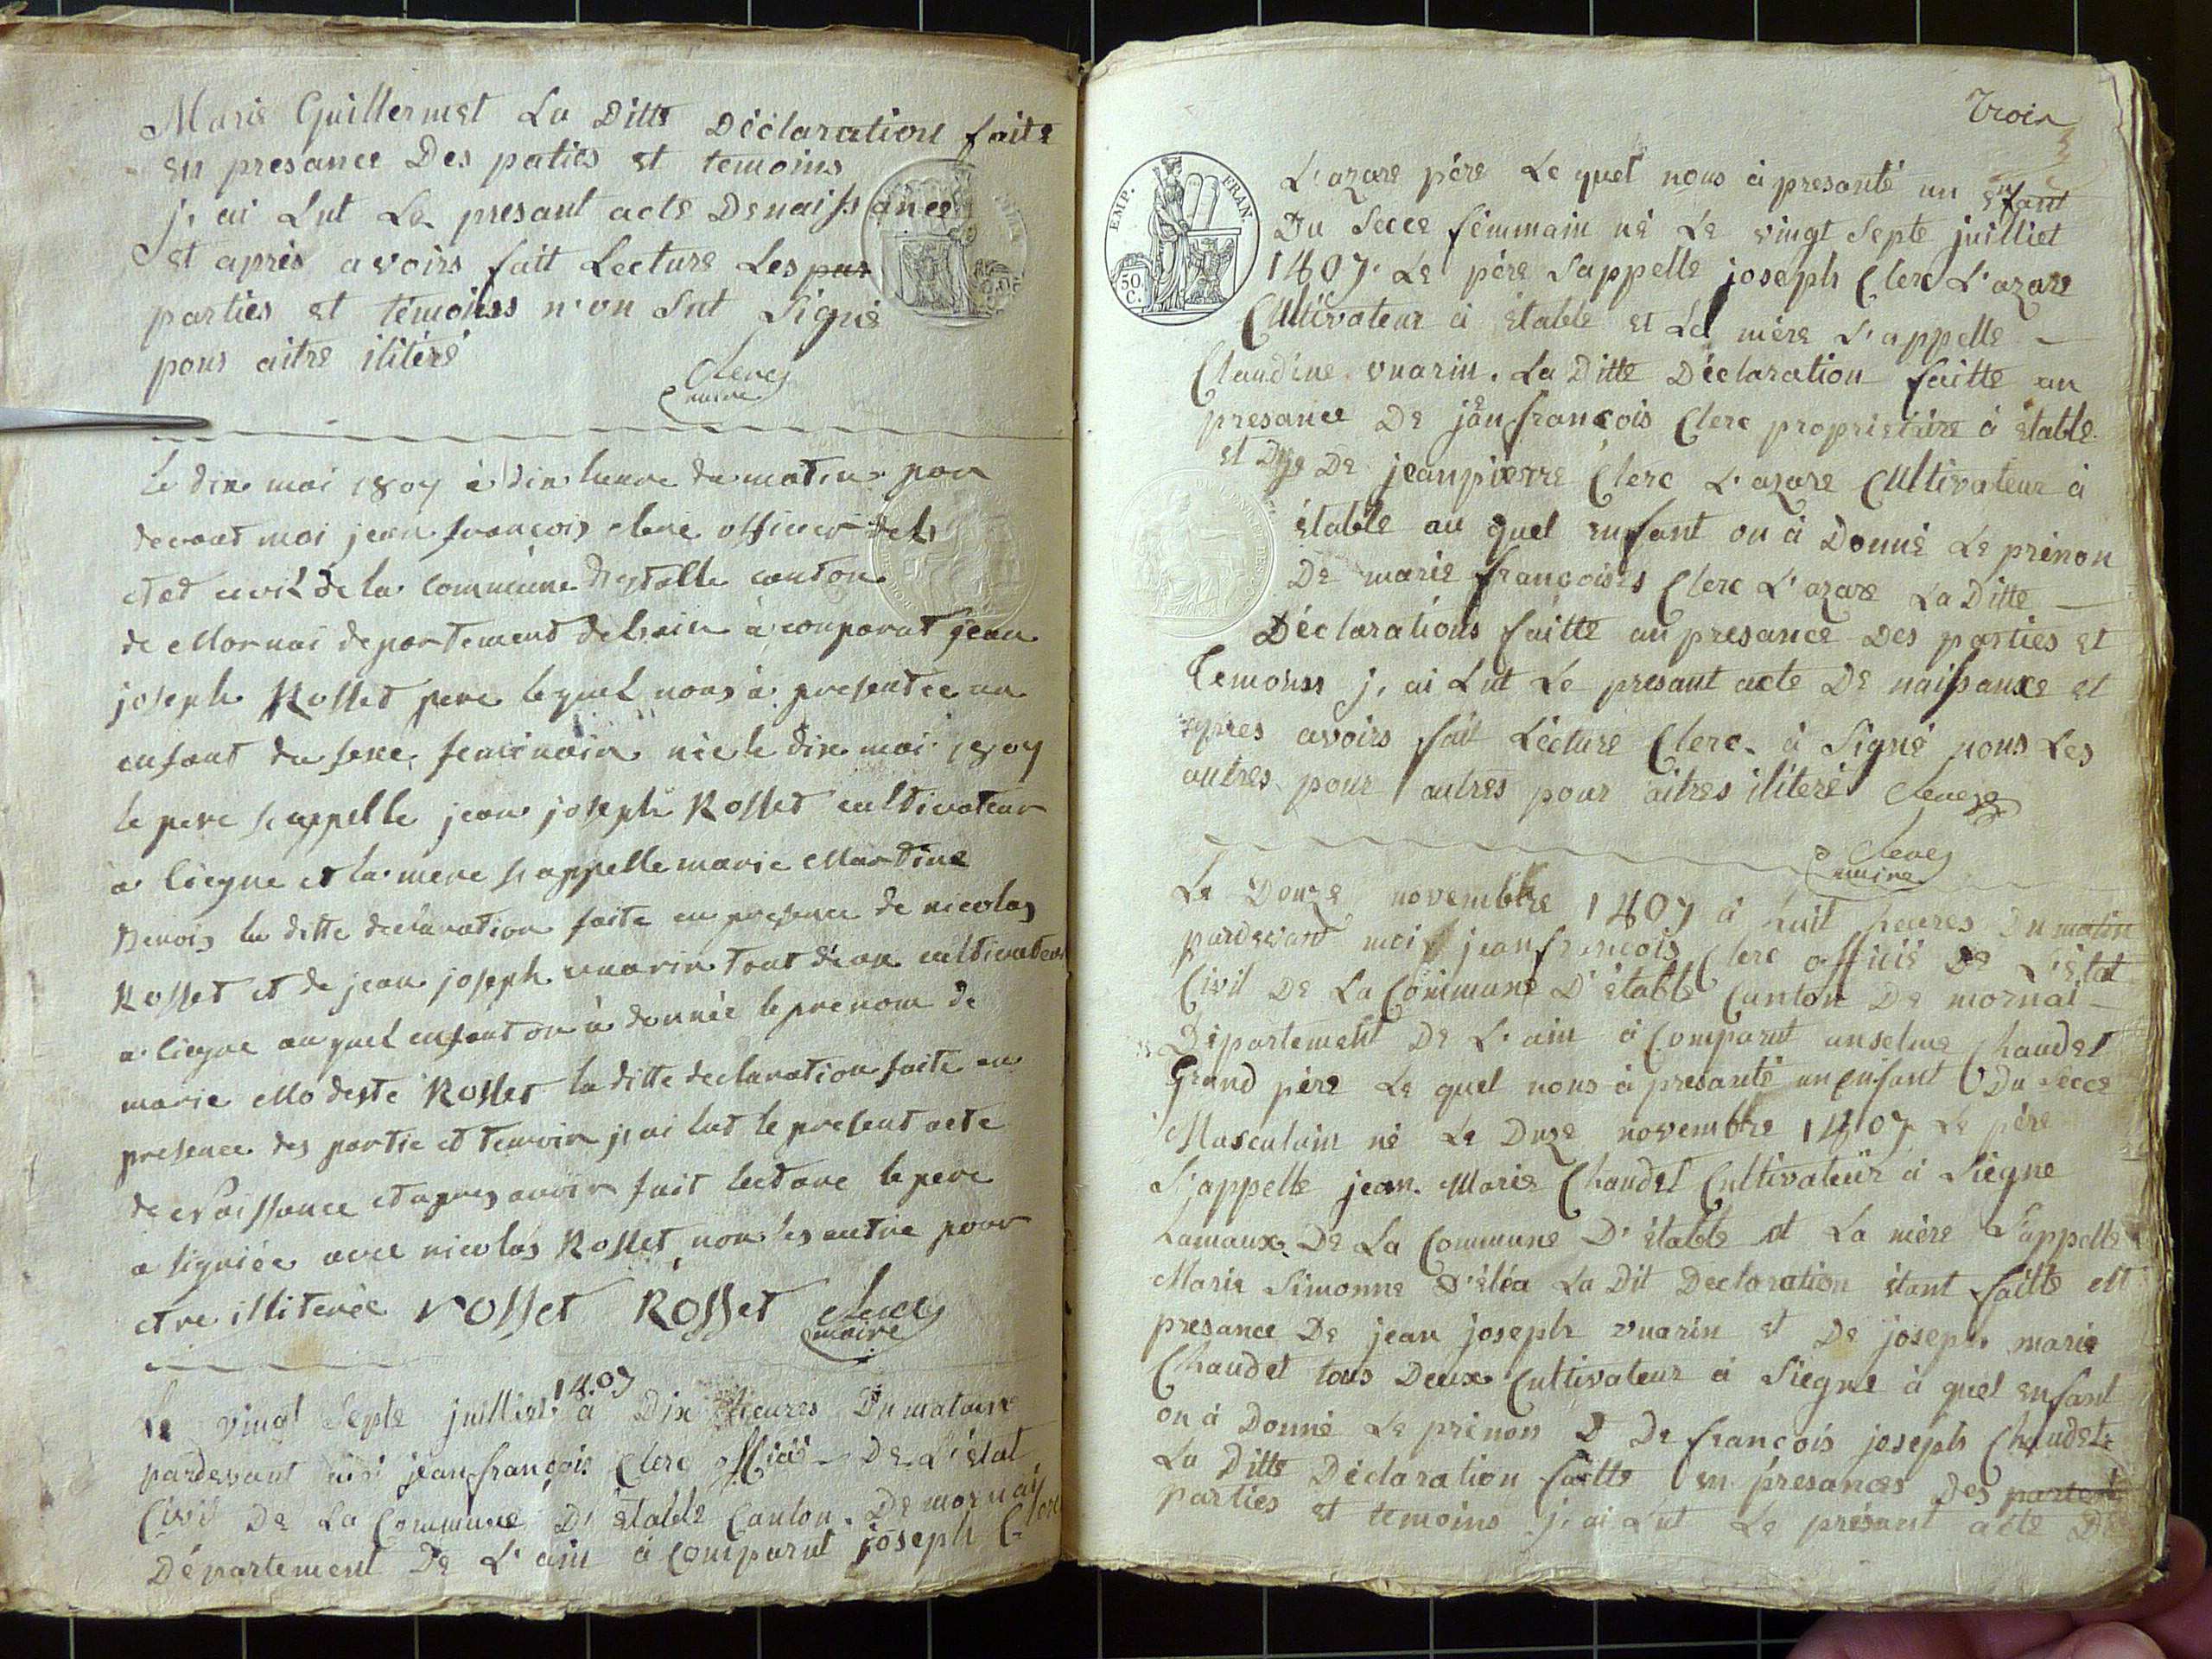 Marie Guillermet La Ditte Déclaration faite
en presance Des paties et temoins
j, ai Lut Le presant acte De naissance
et aprés avoirs fait Lecture Les par
parties et témoins n'on Sut Signé
pour aitre ilitéré
Clerc
maire
le dix mai 1807 à dix heure du matin par
devant moi jean françois clerc officier del
etat civil de la commune d'estable canton
de Mornai departement delain à comparut jean
joseph Rosset pere lequel nous à presentee un
enfant du sexe feminain nee le dix mai 1807
le pere s'appelle jean joseph Rosset cultivateur
a Ciegne et la mere s'appelle marie Martine
Benois la ditte declaration faite en presence de nicolas
Rosset et de jean joseph vuarin tout deux cultivateur
a Ciegne au quel enfant on à donnée le prenom de
marie Modeste Rosset la ditte declaration faite en
presence des partie et temoin j,ai lut le present acte
de naissance et apres avoir fait lecture le pere
a signiée avec nicolas Rosset non les autre pour
etre illiterée rosset Rosset Clerc
maire
1807
Le vingt Septe juilliet à Dix heures Du mataine
pardevant moi jean françois Clerc officié De L'état
Civil De La Commune D'étable Canton De mornay
Département De L'ain à Comparut joseph Clerc
Trois
EMP. FRAN.
50 C.
L'azare pére Le quel nous à presanté un enfant
Du Secce féminmain né Le vingt Septe juilliet
1807. Le pére S'appelle joseph Clerc L'azare
Cultivateur à étable et La mére S'appelle
Claudine vuarin. La Ditte Déclaration faitte an
presance De jean françois Clerc proprietaire à étable
et De jeanpierre Clerc L'azare Cultivateur à
étable au quel enfant on à Donné Le prénon
De marie françoises Clerc L'azare La Ditte
Déclarations faitte an presance Des parties et
Temoins j, ai Lut Le presant acte De naissance et
apres avoirs fait Lécture Clerc à Signé nons Les
autres pour autres pour aitres iliteré Clerc
Clerc
maire
Le Douze novembre 1807 à huit heures Du matin
pardevant moi jean françois Clerc officié De L'état
Civil De La Commune D'étable Canton De mornai
Département De L'ain à Comparut anselme Chaudet
Grand pére Le quel nous à presanté un enfant Du Secce
Masculain né Le Duze novembre 1807 Le pére
S'appelle jean Marie Chaudet Cultivateur à Siegne
hamaux De La Commune D'étable et La mére S'appelle
Marie Simonne D'éléa La Dit Declaration étant faitte en
presance De jean joseph vuarin et De joseph marie
Chaudet tous Deux Cultivateur à Siegne à quel enfant
on à Donné Le prénon D De françois joseph Chaudet
La Ditte Déclaration faitte en presances Des
parties et temoins j, ai Lut Le présant acte De